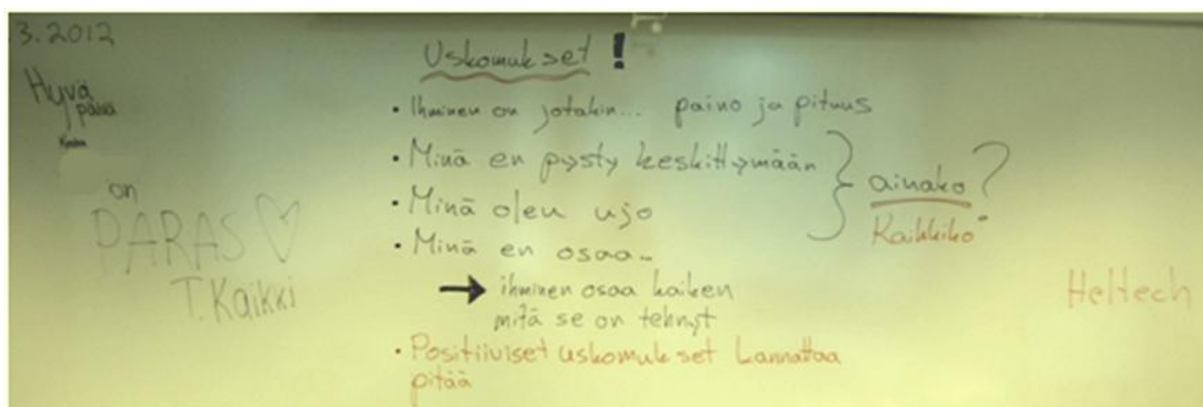 3.2012
Hyvä
päivä
on
PARAS ♡
T. Kaikki
Uskomukset !
• Ihminen on jotakin... paino ja pituus
• Minä en pysty keskittymään
• Minä olen ujo
• Minä en osaa..
→ ihminen osaa kaiken
mitä se on tehnyt
• Positiiviset uskomukset kannattaa
pitää
ainako?
Kaikkiko
Heltech